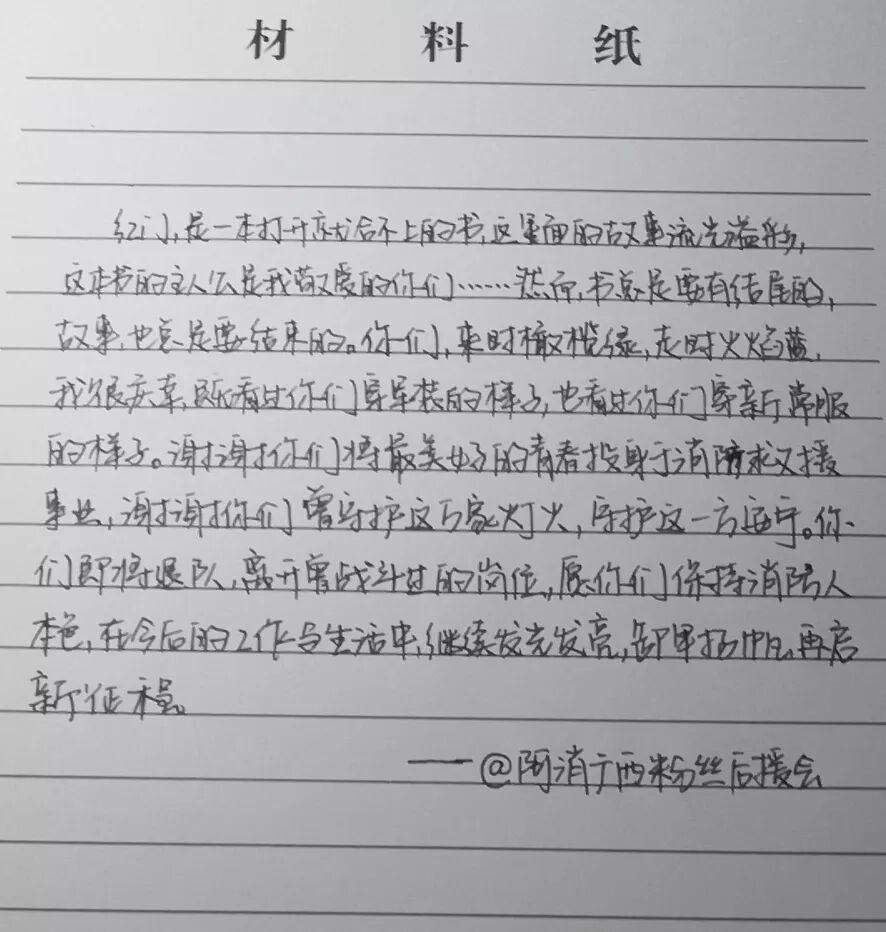 材料纸
红门,是一本打开就合不上的书,这里面的故事流光溢彩,
这本书的主人公是我敬爱的你们……然而,书总是要有结尾的,
故事,也总是要结束的。你们,来时橄榄绿,走时火焰蓝,
我很庆幸,既看过你们穿军装的样子,也看过你们穿新常服
的样子。谢谢你们将最美好的青春投身于消防救援
事业,谢谢你们曾守护这万家灯火,守护这一方安宁。你
们即将退队,离开曾战斗过的岗位,愿你们保持消防人
本色,在今后的工作与生活中,继续发光发亮,卸甲扬帆,再启
新征程。
——@阿消广西粉丝后援会